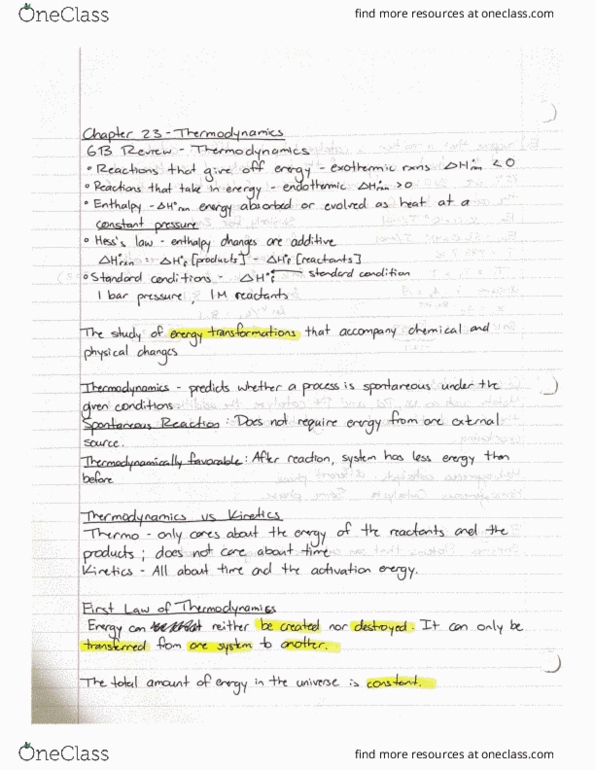 OneClass
find more resources at oneclass.com
Chapter 23 - Thermodynamics
6B Review - Thermodynamics
• Reactions that give off energy - exothermic rxns ΔH°rxn < 0
• Reactions that take in energy - endothermic ΔH°rxn > 0
• Enthalpy - ΔH°rxn energy absorbed or evolved as heat at a
constant pressure
• Hess's law - enthalpy changes are additive
ΔH°rxn = ΔH°f [products] - ΔH°f [reactants]
• Standard conditions - ΔH°f ← standard condition
1 bar pressure, 1M reactants
The study of energy transformations that accompany chemical and
physical changes
Thermodynamics - predicts whether a process is spontaneous under the
given conditions
Spontaneous Reaction: Does not require energy from one external
source.
Thermodynamically favorable: After reaction, system has less energy than
before
Thermodynamics vs Kinetics
Thermo - only cares about the energy of the reactants and the
products; does not care about time
Kinetics - All about time and the activation energy.
First Law of Thermodynamics
Energy can neither be created nor destroyed. It can only be
transferred from one system to another.
The total amount of energy in the universe is constant.
OneClass
find more resources at oneclass.com